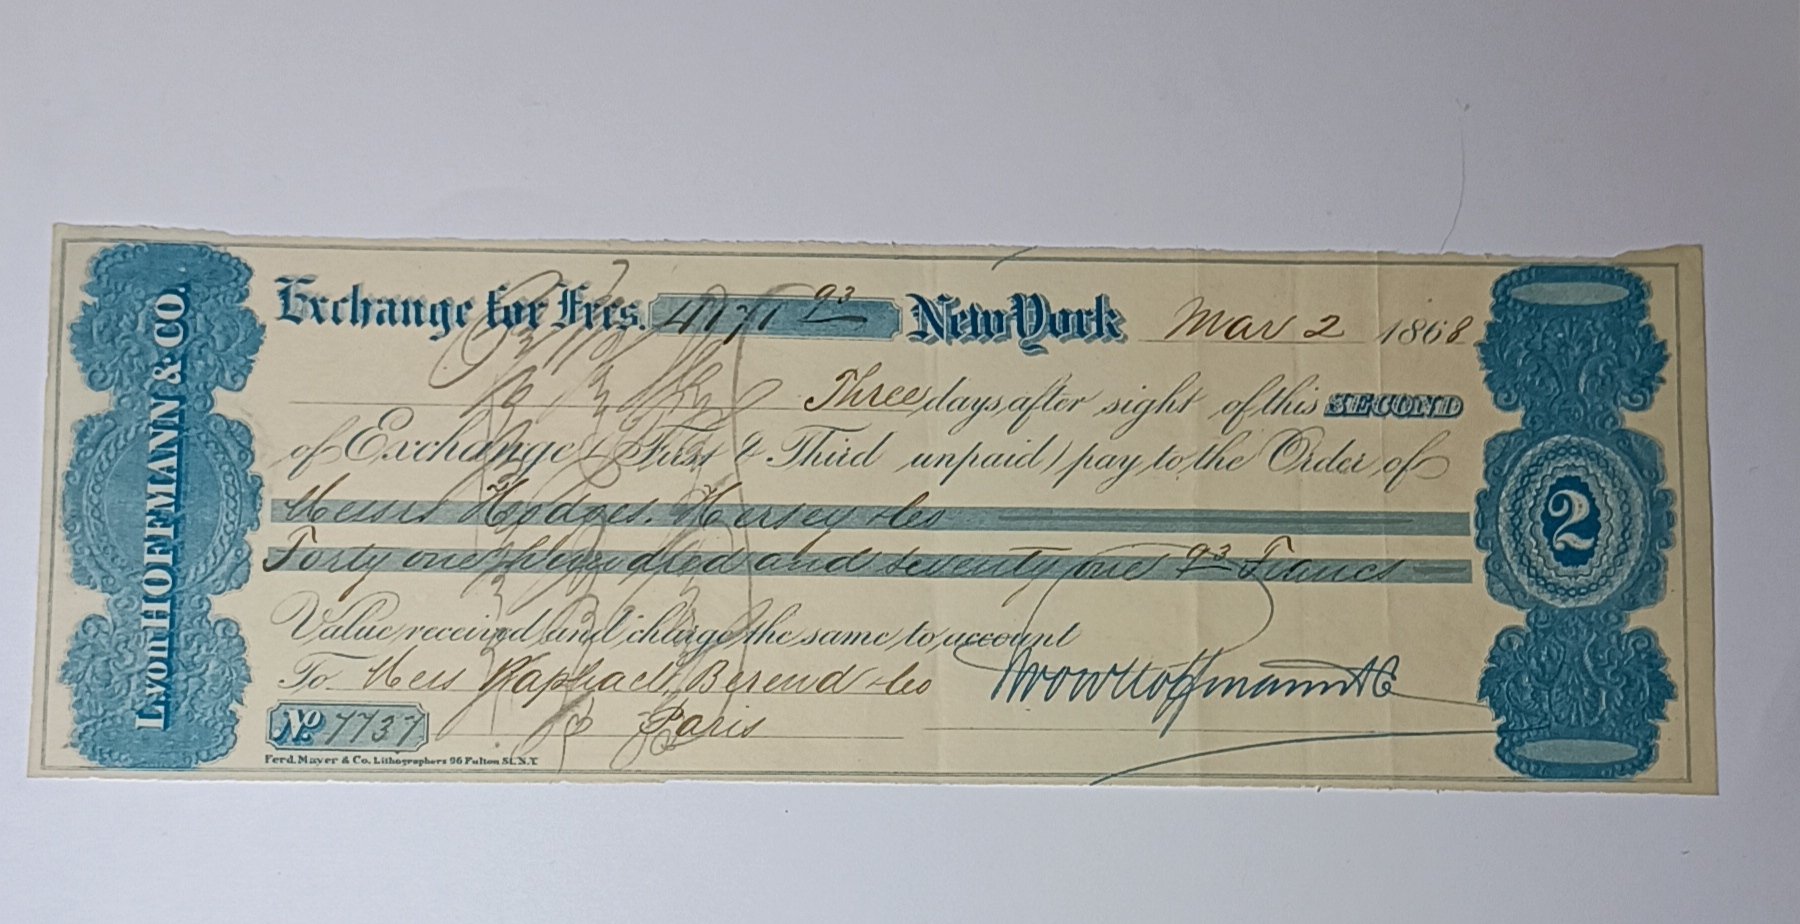 LyonHOFFMANN & CO.
Exchange for Frcs. 4171 93 New York Mar 2 1868
Three days after sight of this SECOND
of Exchange (First & Third unpaid) pay to the Order of
Messrs Hodges, Hersey & Co
Forty one hundred and seventy one 93 Francs
Value received and charge the same to account
To Mess Raphael, Berend & Co
Paris
No 7737
Ferd. Mayer & Co. Lithographers 96 Fulton St. N.Y.
2